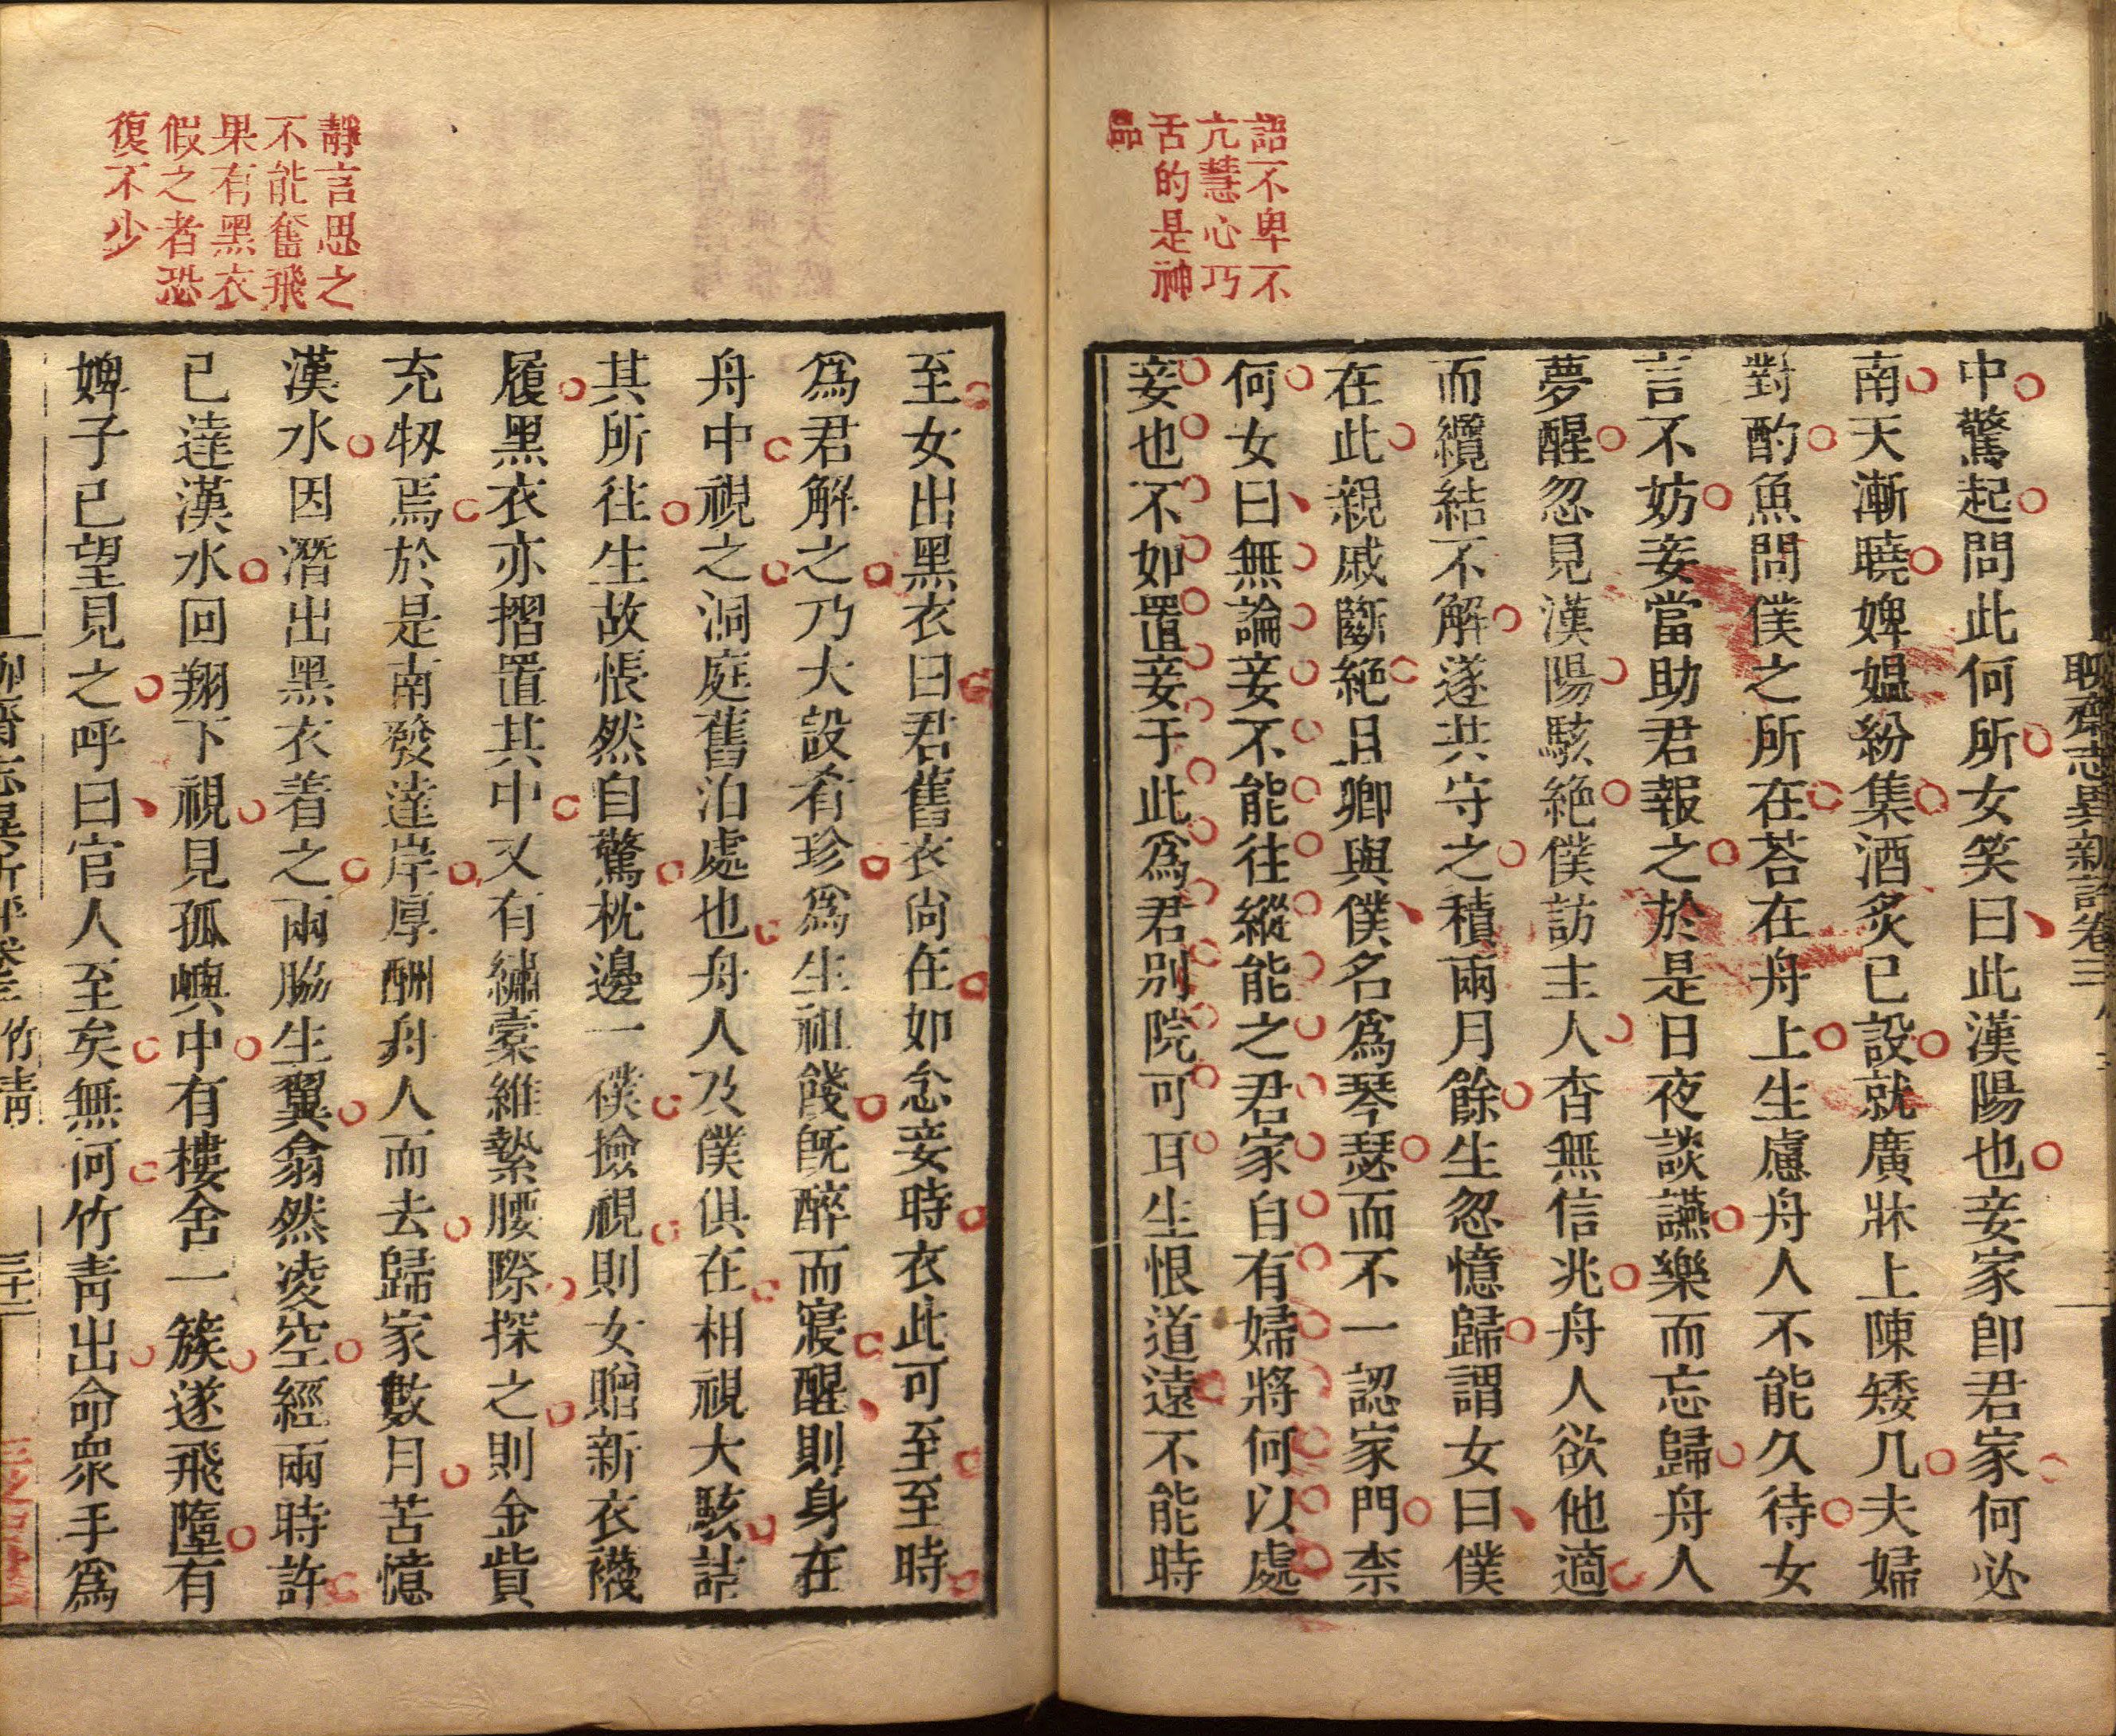 聊齋志異新評卷三
語不卑不
亢慧心巧
舌的是神
品
中驚起問此何所女笑曰此漢陽也妾家即君家何必
南天漸曉婢媼紛集酒炙已設就廣牀上陳矮几夫婦
對酌魚問僕之所在荅在舟上生慮舟人不能久待女
言不妨妾當助君報之於是日夜談讌樂而忘歸舟人
夢醒忽見漢陽駭絶僕訪主人杳無信兆舟人欲他適
而纜結不解遂共守之積兩月餘生忽憶歸謂女曰僕
在此親戚斷絶且卿與僕名爲琴瑟而不一認家門柰
何女曰無論妾不能往縱能之君家自有婦將何以處
妾也不如置妾于此爲君别院可耳生恨道遠不能時
靜言思之
不能奮飛
果有黑衣
假之者恐
復不少
至女出黑衣曰君舊衣尙在如念妾時衣此可至至時
爲君解之乃大設肴珍爲生祖餞旣醉而寢醒則身在
舟中視之洞庭舊泊處也舟人及僕俱在相視大駭詰
其所往生故悵然自驚枕邊一襆撿視則女贈新衣襪
履黑衣亦摺置其中又有繡橐維縶腰際探之則金貲
充牣焉於是南發達岸厚酬舟人而去歸家數月苦憶
漢水因潛出黑衣着之兩脇生翼翕然凌空經兩時許
已達漢水回翔下視見孤嶼中有樓舍一簇遂飛墮有
婢子已望見之呼曰官人至矣無何竹靑出命衆手爲
聊齋志異新評卷三 竹靑 三十二